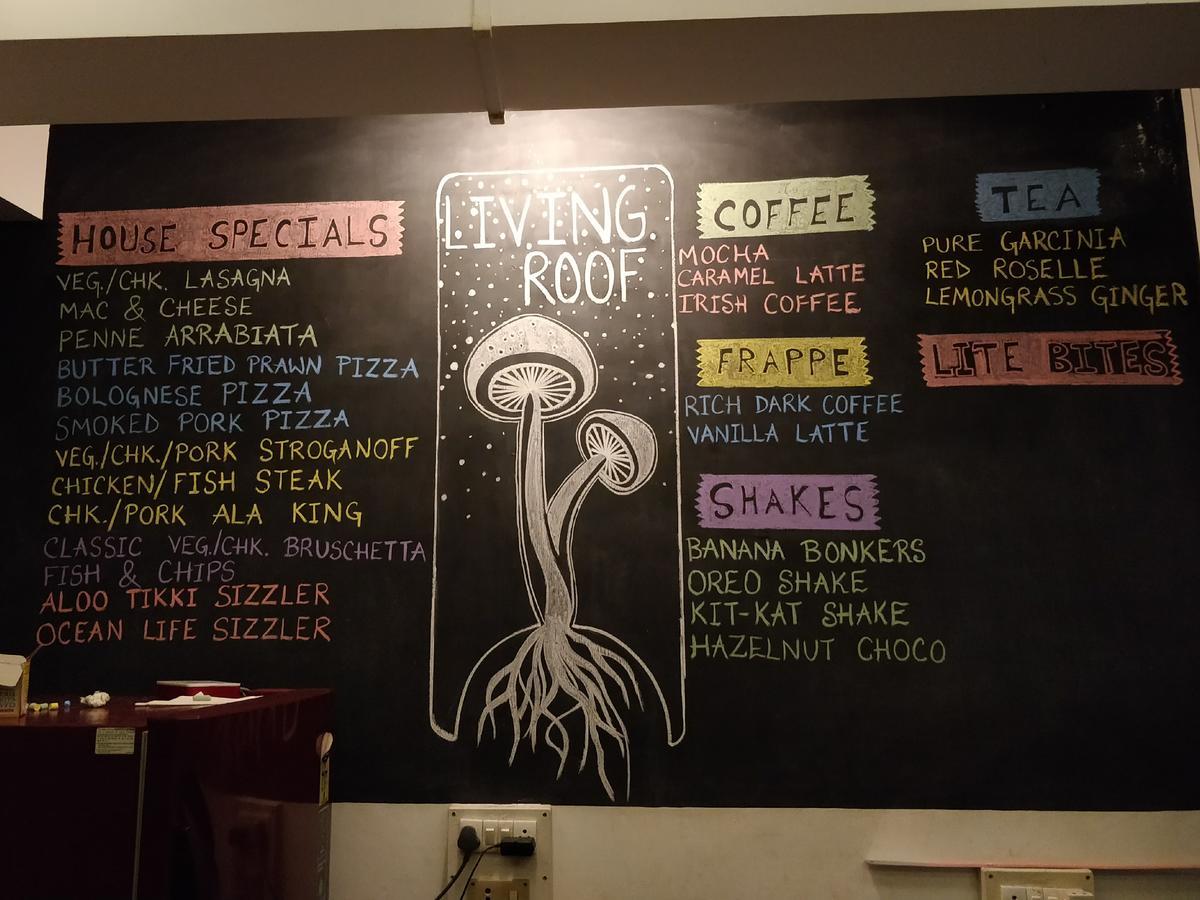 HOUSE SPECIALS
VEG./CHK. LASAGNA
MAC & CHEESE
PENNE ARRABIATA
BUTTER FRIED PRAWN PIZZA
BOLOGNESE PIZZA
SMOKED PORK PIZZA
VEG./CHK./PORK STROGANOFF
CHICKEN/FISH STEAK
CHK./PORK ALA KING
CLASSIC VEG./CHK. BRUSCHETTA
FISH & CHIPS
ALOO TIKKI SIZZLER
OCEAN LIFE SIZZLER
LIVING
ROOF
COFFEE
MOCHA
CARAMEL LATTE
IRISH COFFEE
FRAPPE
RICH DARK COFFEE
VANILLA LATTE
SHAKES
BANANA BONKERS
OREO SHAKE
KIT-KAT SHAKE
HAZELNUT CHOCO
TEA
PURE GARCINIA
RED ROSELLE
LEMONGRASS GINGER
LITE BITES